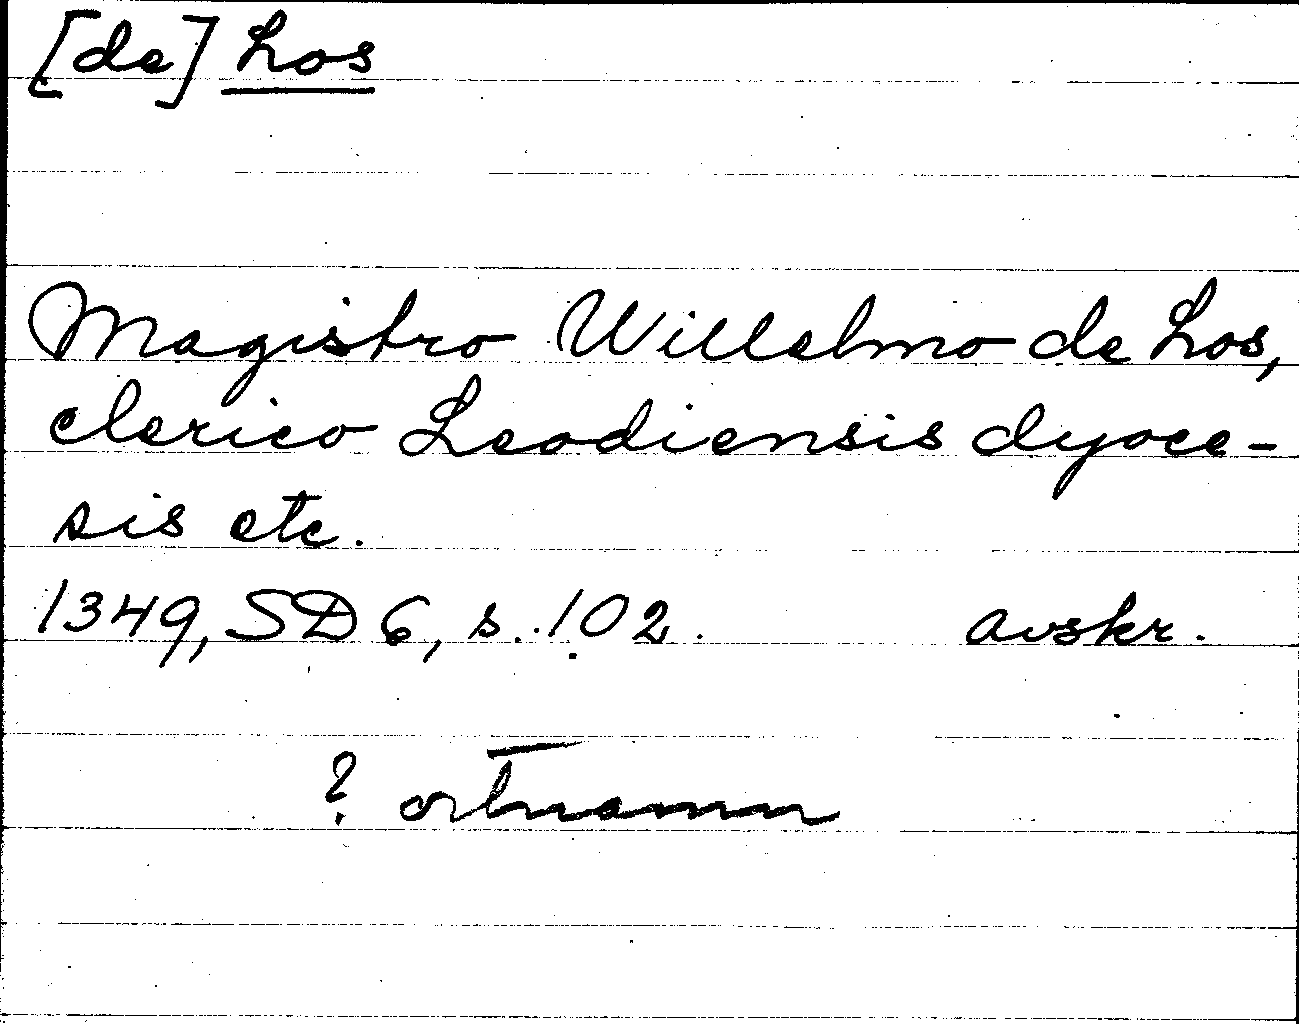 [de] Los
Magistro Willelmo de Los,
clerico Leodiensis dyoce-
sis etc.
1349, SD 6, s. 102. avskr.
? ortnamn